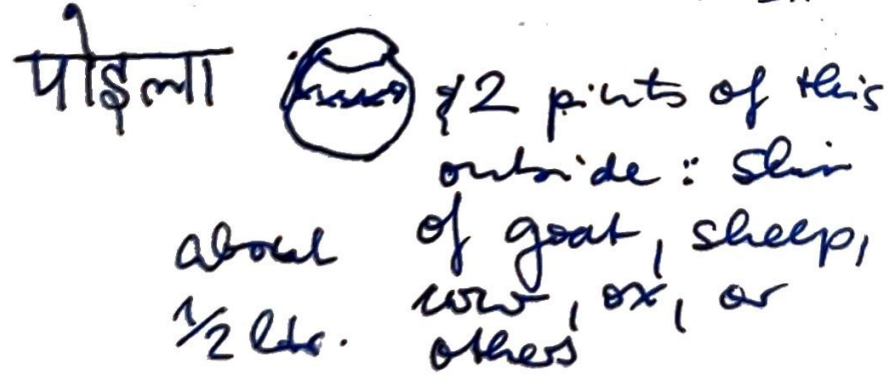 पोइला
2 pints of this
outside : Skin
about of goat, sheep,
1/2 ltr. cow, ox, or
others